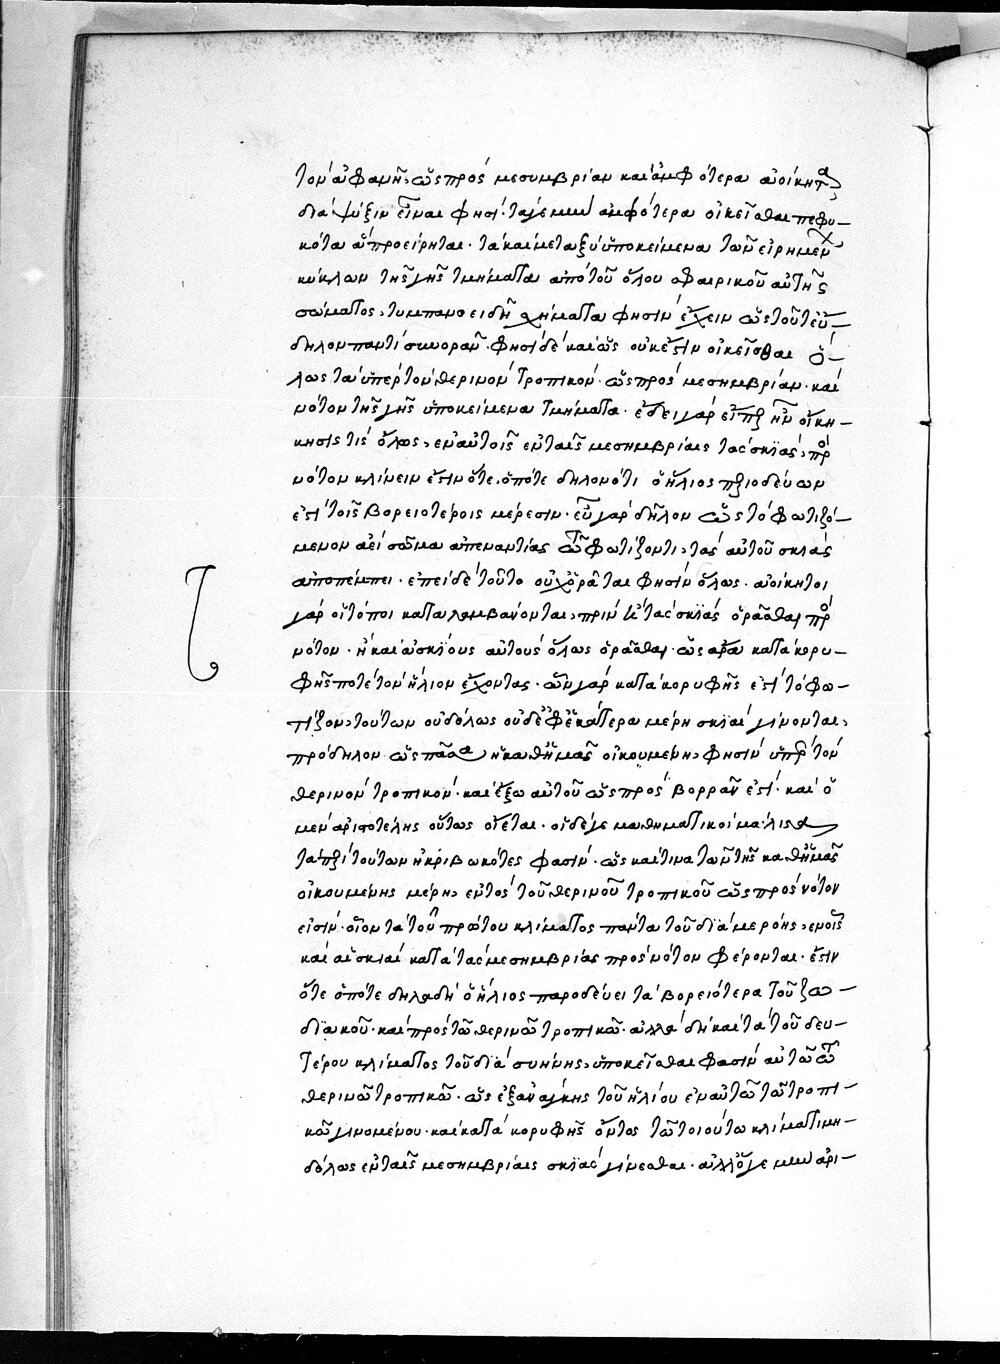 τὸν ἀφανῆ, ὡς πρὸς μεσυμβρίαν καὶ ἀμφότερα ἀοίκητα
διὰ ψύξιν εἶναι φησί· τά γε μὴν ἀμφότερα οἰκεῖσθαι πεφυ-
κότα ἃ προείρηται· τὰ καὶ μεταξὺ ὑποκείμενα τῶν εἰρημένων
κύκλων τῆς γῆς τμήματα ἀπὸ τοῦ ὅλου σφαιρικοῦ αὐτῆς
σώματος, τυμπανοειδῆ σχήματα φησὶν ἔχειν ὡς τοῦτ' εὔ-
δηλον παντὶ συνορᾶν· φησὶ δὲ καὶ ὡς οὐκ ἔστιν οἰκεῖσθαι ὅ-
λως τὰ ὑπὲρ τὸν θερινὸν τροπικὸν· ὡς πρὸς μεσημβρίαν· καὶ
νότον τῆς γῆς ὑποκείμενα τμήματα· ἔδει γὰρ εἴπερ ἦν οἴκη-
κησις τίς ὅλως, ἐν αὐτοῖς ἐν ταῖς μεσημβρίαις τὰς σκιὰς, πρὸς
νότον κλίνειν ἔστιν ὅτε. ὁπότε δηλονότι ὁ ἥλιος περιοδεύων
ἐστὶ τοῖς βορειοτέροις μέρεσιν· εὖ γὰρ δῆλον ὡς τὸ φωτιζό-
μενον ἀεὶ σῶμα ἀπεναντίας τῶ φωτίζοντι, τὰς αὐτοῦ σκιὰς
ἀποπέμπει· ἐπεὶ δὲ τοῦτο οὐχ ὁρᾶται φησὶν ὅλως· ἀοίκητοι
γὰρ οἱ τόποι καταλαμβάνονται, πρὶν ἢ τὰς σκιὰς ὁρᾶσθαι πρὸς
νότον· ἢ καὶ ἀσκίους αὐτοὺς ὅλως ὁρᾶσθαι· ὡς ἄρα κατὰ κορυ-
φῆς ποτὲ τὸν ἥλιον ἔχοντας· ὧν γὰρ κατὰ κορυφῆς ἐστὶ τὸ φω-
τίζον, τούτων οὐδόλως οὐδ' ἐφ' ἑκάτερα μέρη σκιαὶ γίνονται,
πρόδηλον ὡς πᾶσα, ἡ καθ' ἡμᾶς οἰκουμένη, φησὶν ὑπὲρ τὸν
θερινὸν τροπικὸν· καὶ ἔξω αὐτοῦ ὡς πρὸς βορρᾶν ἐστί· καὶ ὁ
μὲν ἀριστοτέλης οὕτως οἴεται· οἱ δέ γε μαθηματικοὶ μάλιστα
τὰ περὶ τούτων ἠκριβωκότες φασὶν· ὡς καὶ τινα τῶν τῆς καθ' ἡμᾶς
οἰκουμένης μέρη, ἐντὸς τοῦ θερινοῦ τροπικοῦ ὡς πρὸς νότον
εἰσίν· οἷον τὰ τοῦ πρώτου κλίματος πάντα τοῦ διὰ μερόης, ἐν οἷς
καὶ αἱ σκιαὶ κατὰ τὰς μεσημβρίας πρὸς νότον φέρονται· ἔστιν
ὅτε ὁπότε δηλαδὴ ὁ ἥλιος παροδεύει τὰ βορειότερα τοῦ ζω-
διακοῦ· καὶ πρὸς τῶ θερινῶ τροπικῶ· ἀλλὰ δὴ καὶ τὰ τοῦ δευ-
τέρου κλίματος τοῦ διὰ συήνης, ὑποκεῖσθαι φασὶν αὐτῶ τῶ
θερινῶ τροπικῶ· ὡς ἐξανάγκης τοῦ ἡλίου ἐν αὐτῶ τῶ τροπι-
κῶ γινομένου· καὶ κατὰ κορυφῆς ὄντος τῶ τοιούτω κλίματι μη-
δόλως ἐν ταῖς μεσημβρίαις σκιὰς γίνεσθαι· ἀλλ' ὅ γε μὴν ἀρι-